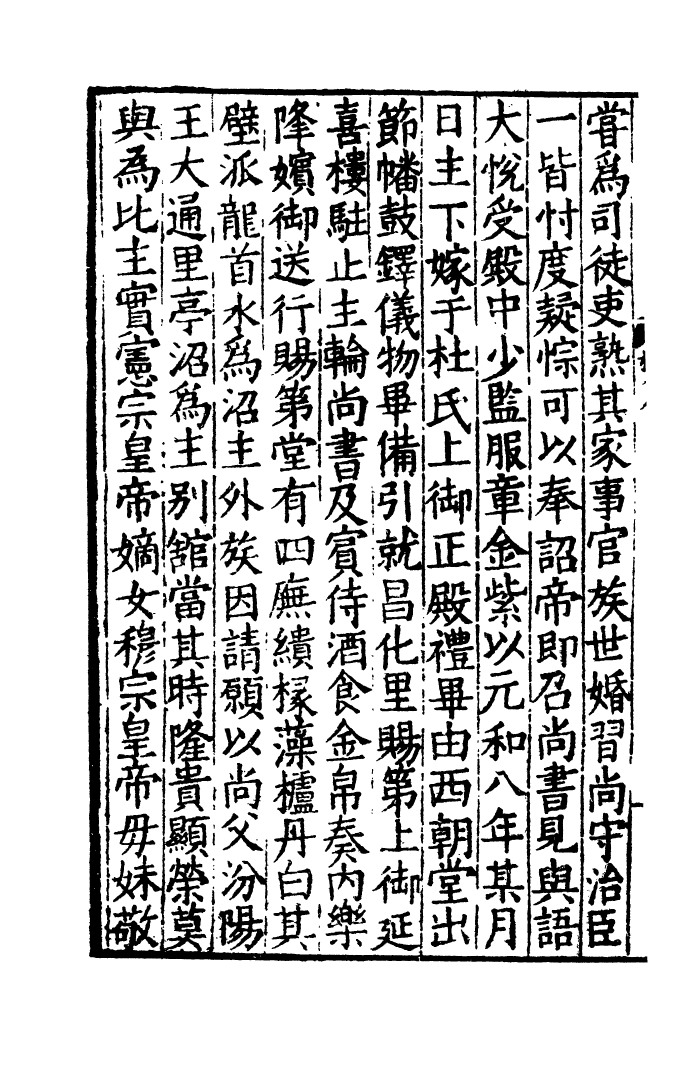 甞爲司徒吏熟其家事官族世婚習尚守治臣
一皆忖度疑悰可以奉詔帝即召尚書見與語
大悅受殿中少監服章金紫以元和八年某月
日主下嫁于杜氏上御正殿禮畢由西朝堂出
節幡鼓鐸儀物畢備引就昌化里賜第上御延
喜樓駐止主輪尚書及賓侍酒食金帛奏內樂
降嬪御送行賜第堂有四廡繢椽藻櫨丹白其
壁派龍首水爲沼主外族因請願以尚父汾陽
王大通里亭沼爲主別舘當其時隆貴顯榮莫
與爲比主實憲宗皇帝嫡女穆宗皇帝毋妹敬